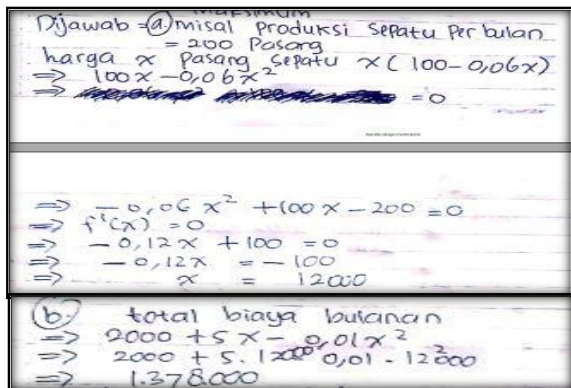 maksimum
Dijawab = (a) misal produksi sepatu per bulan
= 200 Pasang
harga x pasang sepatu x (100 - 0,06x)
=> 100x - 0,06x²
=> = 0
=> - 0,06 x² + 100 x - 200 = 0
=> f'(x) = 0
=> - 0,12x + 100 = 0
=> - 0,12x = - 100
=> x = 12000
(b) total biaya bulanan
=> 2000 + 5x - 0,01x²
=> 2000 + 5. 12000 0,01 - 12000²
=> 1.378.000